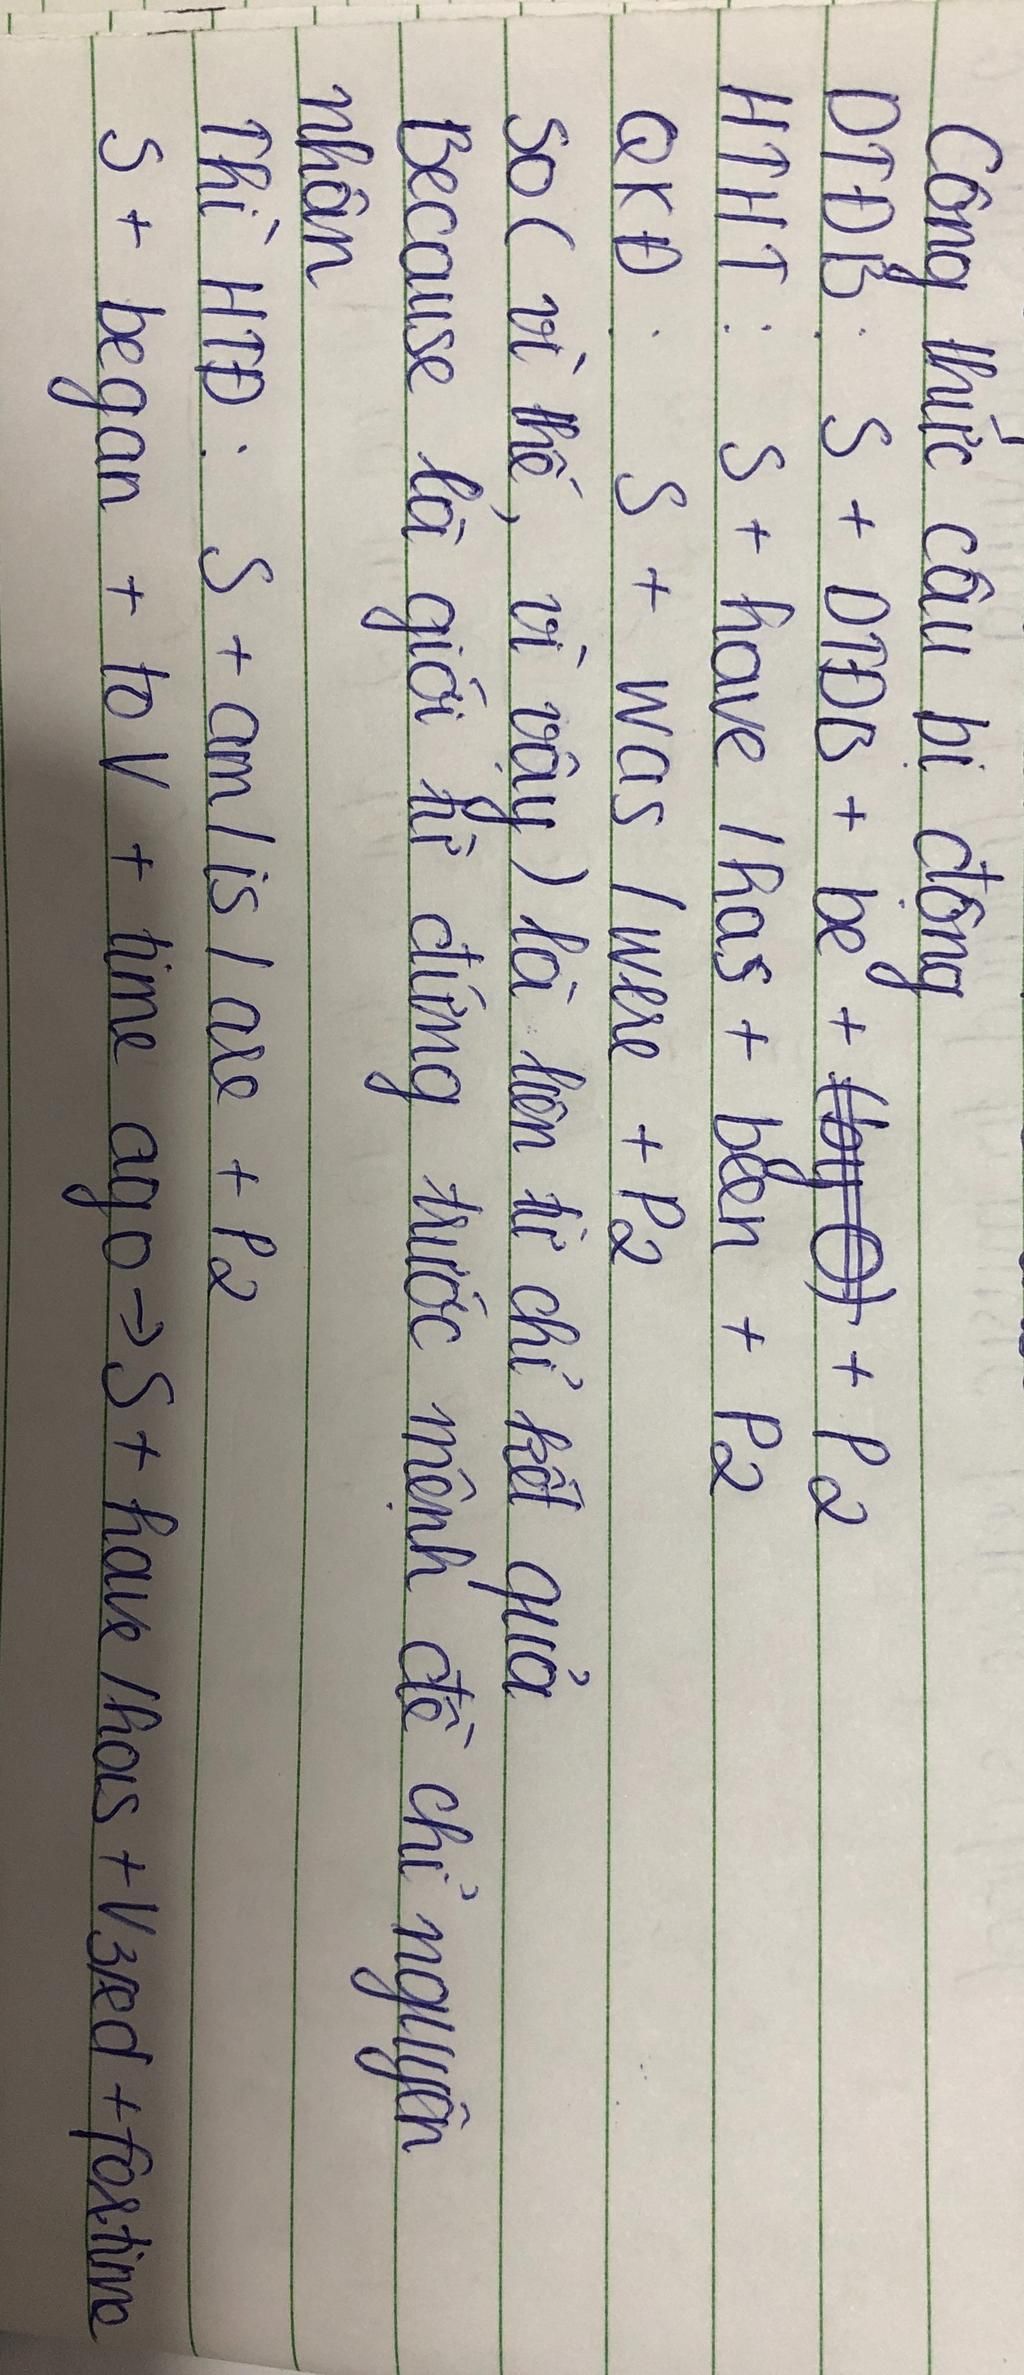 Công thức câu bị động
DTĐB: S + DTĐB + be + (by O) + P2
HTHT: S + have / has + been + P2
QKĐ: S + was / were + P2
so ( vì thế, vì vậy) là liên từ chỉ kết quả
Because là giới từ đứng trước mệnh đề chỉ nguyên
nhân
Thì HTĐ: S + am / is / are + P2
S + began + to V + time ago → S + have / has + V3/ed + for time